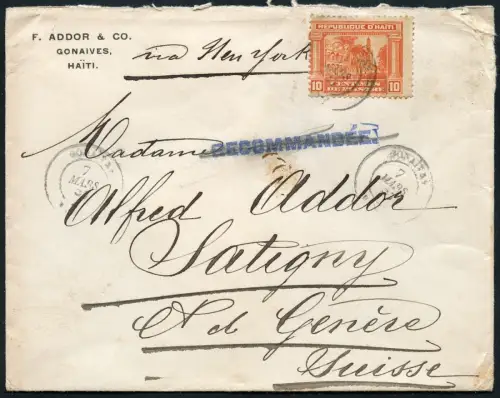 F. ADDOR & CO.
GONAIVES,
HAÏTI.
via New York
RÉPUBLIQUE D'HAITI
10 CENTIMES 10
DE PIASTRE
Madame
RECOMMANDÉE
GONAIVES
7
MARS
GONAIVES
7
MARS
Alfred Addor
Satigny
Ct de Genève
Suisse